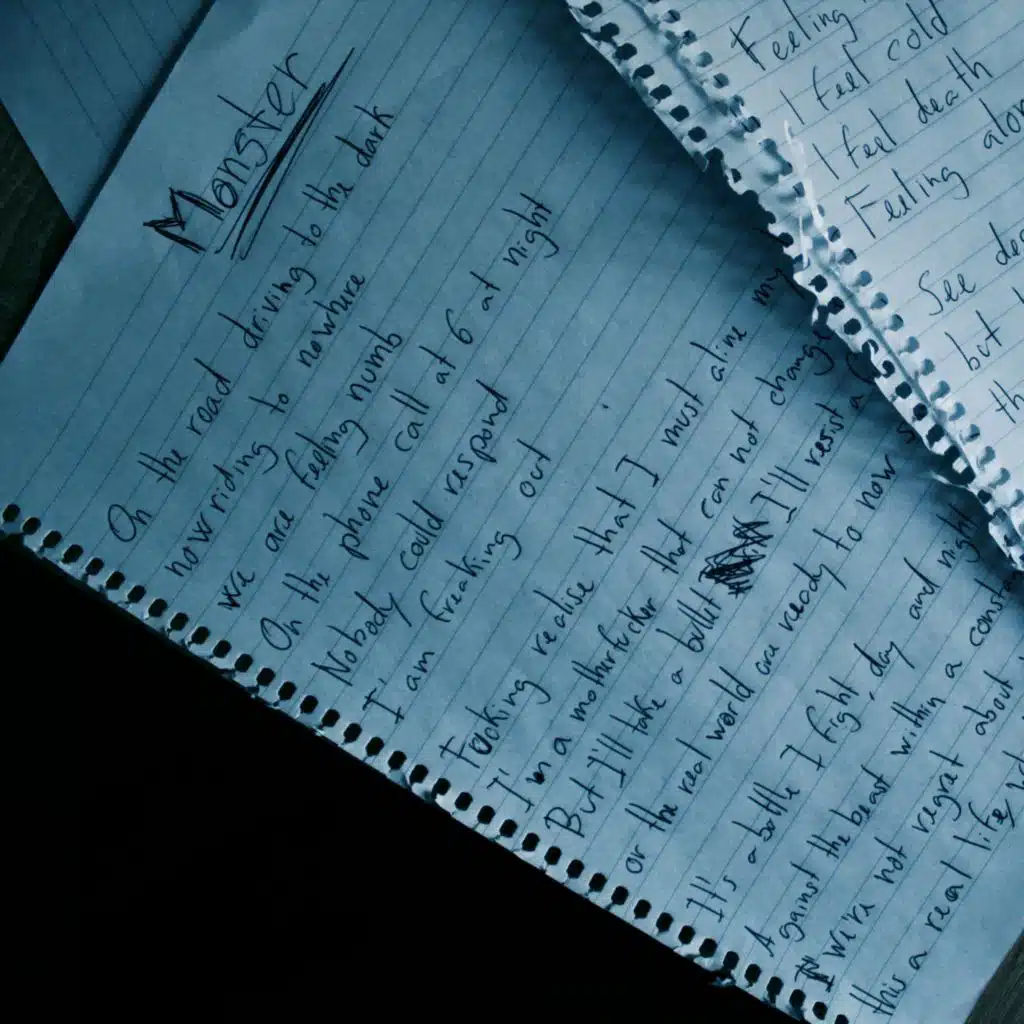 Monster
On the read driving to the dark
now riding to nowhere
we are feeling numb
On the phone call at 6 at night
Nobody could respond
I am freaking out
Fucking realise that I must alime my
I'm a motherfucker that can not change
But I'll take a bullet I'll resist a
or the real world are ready to now
It's a battle I fight, day and night
Against the beast within a
We're not regret about
this a real life
Feeling
I feel cold
I feel death
Feeling
See
but